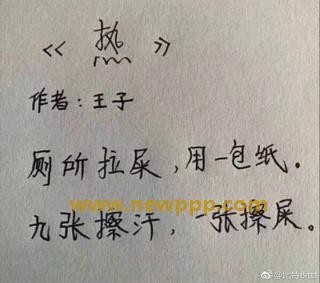 《热》
作者：王子
厕所拉屎，用一包纸。
www.newppp.com
九张擦汗，一张擦屎。
@比特Bittt